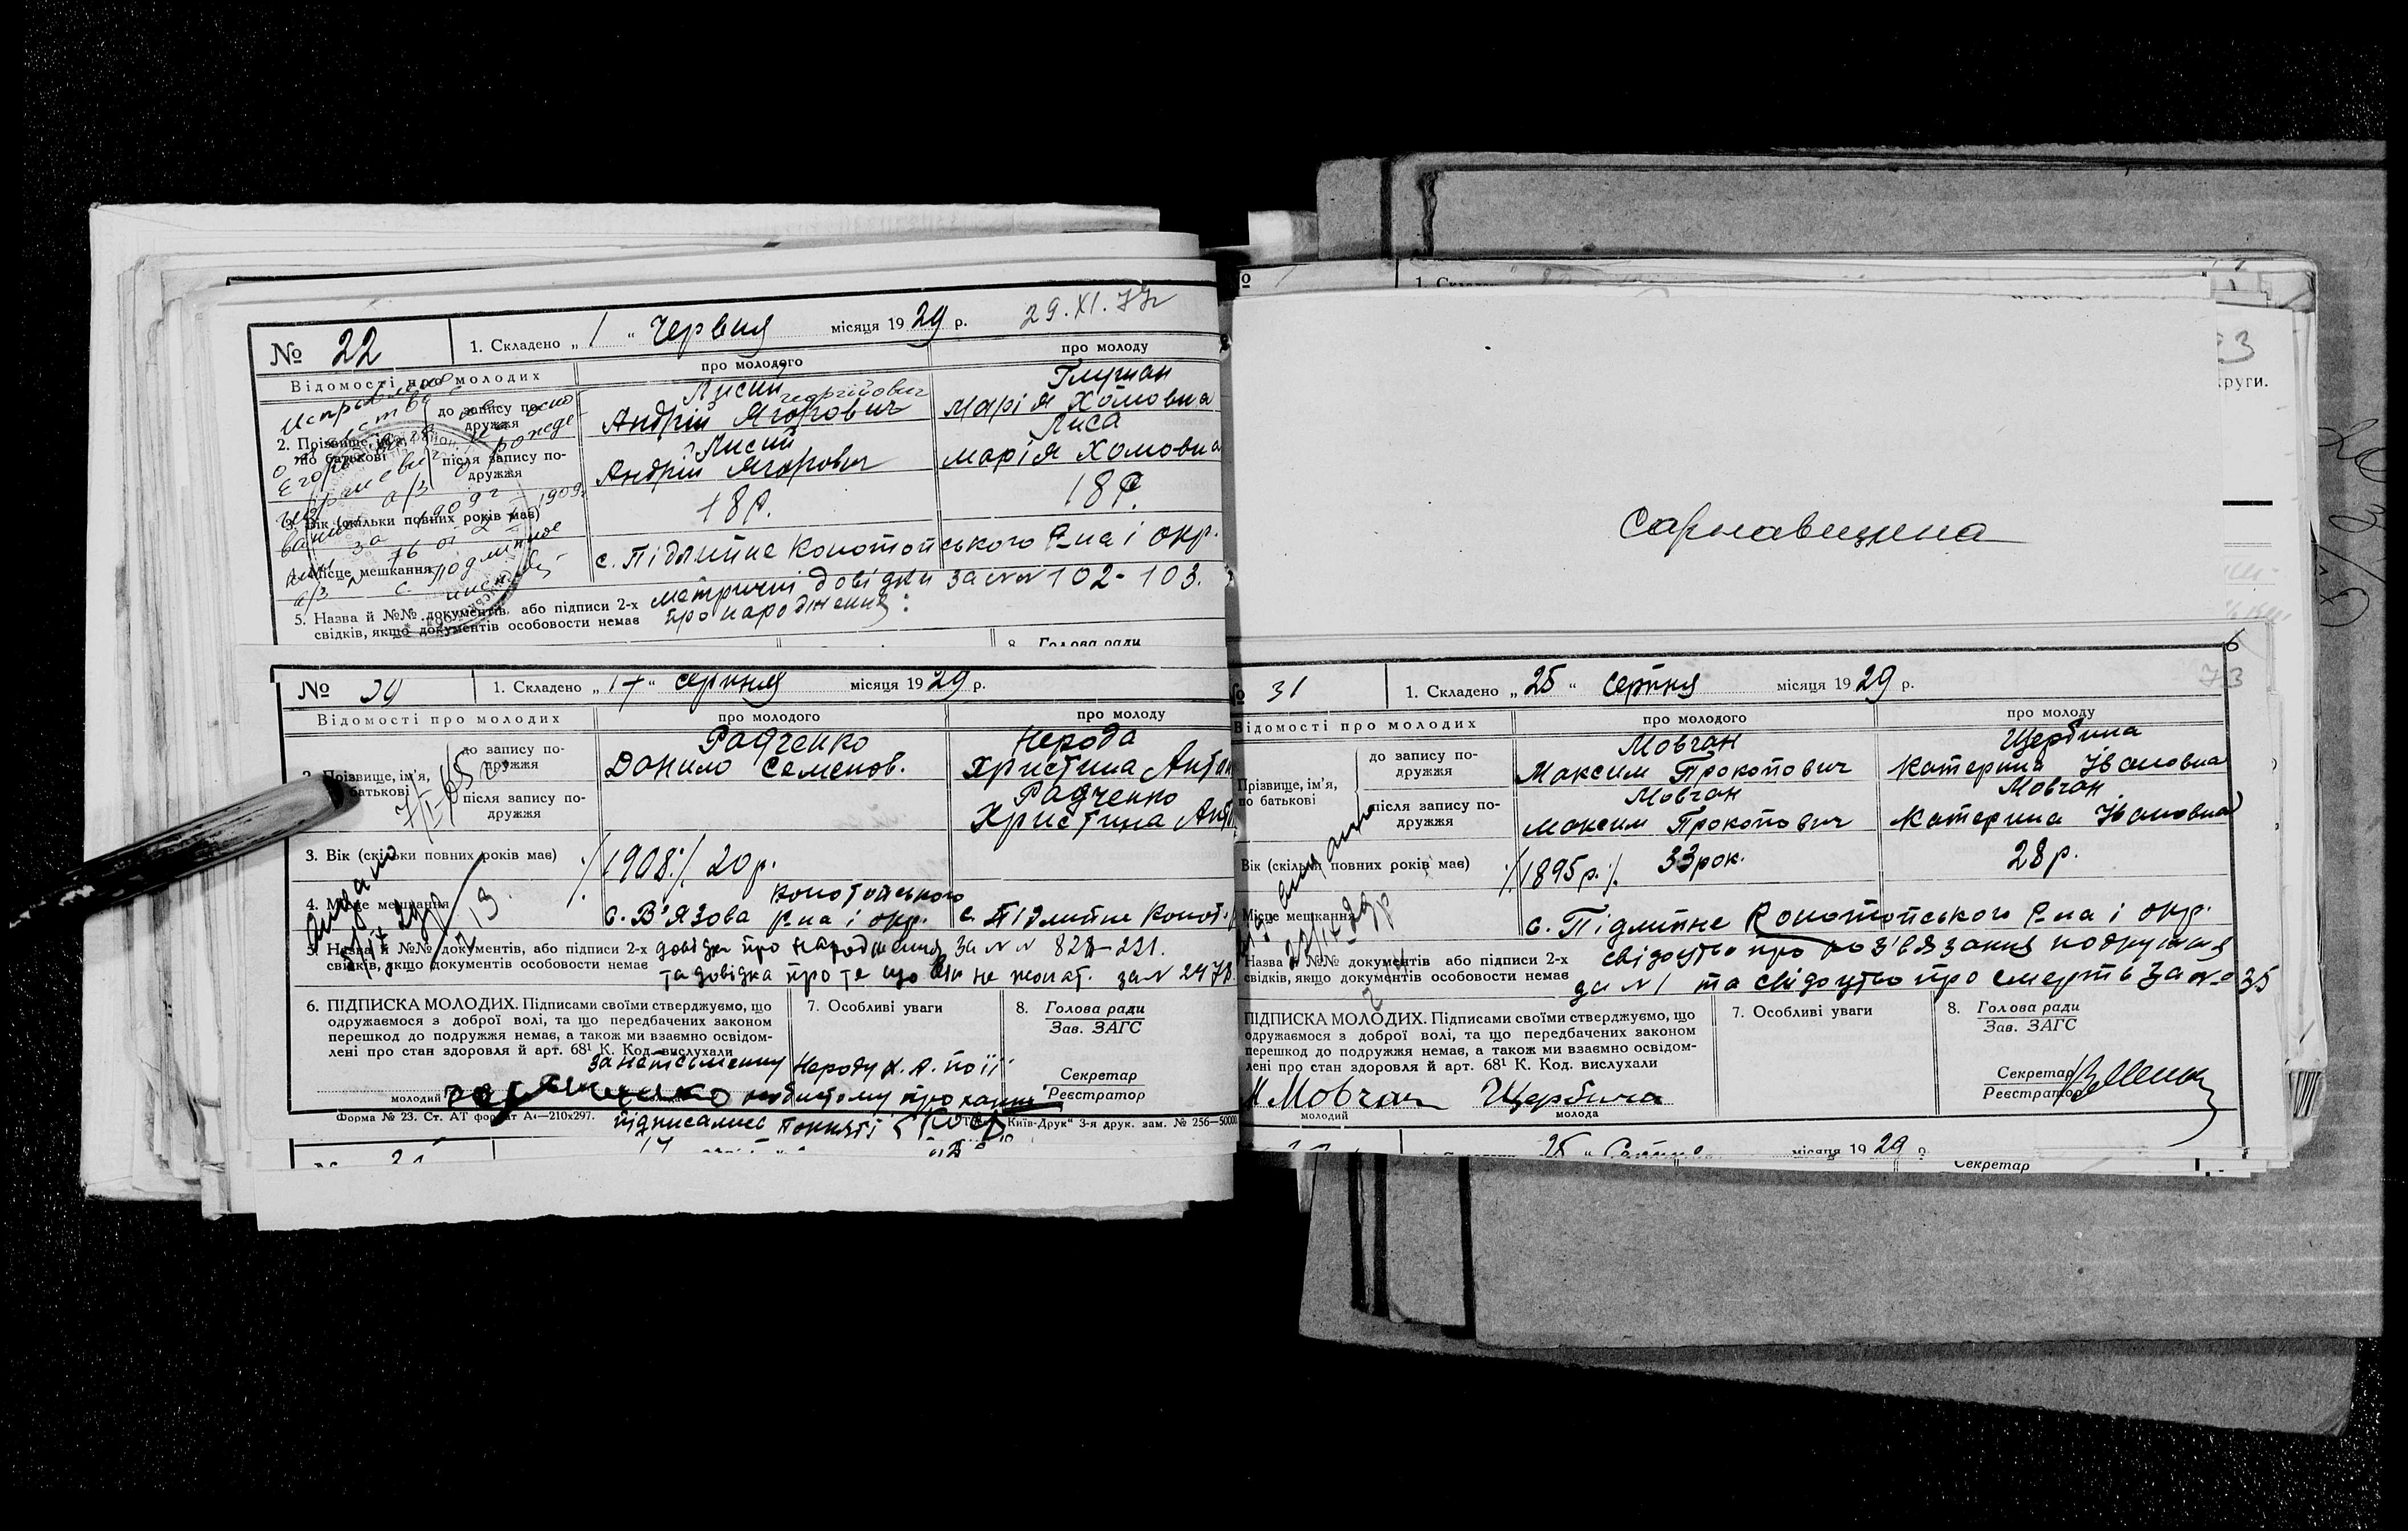 № 22
1. Складено „ 1 “ Червня місяця 1929 р. 29.XI.77г
Відомості про молодих
про молодого
про молоду
2. Прізвище, ім'я, по батькові
до запису по-
дружжя
Лисий
Георгійович
Андрій Ягорович
Глушан
Марія Хомовна
після запису по-
дружжя
Лисий
Андрій Ягорович
Лиса
Марія Хомовна
3. Вік (скільки повних років має)
18 р.
18 р.
4. Місце мешкання
с. Підлипне Конотопського Р-на і окр.
5. Назва й №№ документів, або підписи 2-х
свідків, якщо документів особовости немає
метричні довідки за NN 102-103.
про народження:
8. Голова ради
№ 30
1. Складено „ 17 “ серпня місяця 1929 р.
Відомості про молодих
про молодого
про молоду
Прізвище, ім'я,
батькові
до запису по-
дружжя
Радченко
Данило Семенов.
Нерода
Христина Антон
після запису по-
дружжя
Радченко
Христина Ант
3. Вік (скільки повних років має)
/1908/ 20 р.
4. Місце мешкання
Конотопського
с. В'язова Р-на і окр.
с. Підлипне Конот.
5. Назва й №№ документів, або підписи 2-х
свідків, якщо документів особовости немає
довідки про народження за NN 828-221.
та довідка про те що він не жонат. за N 2478
6. ПІДПИСКА МОЛОДИХ. Підписами своїми стверджуємо, що
одружаємося з доброї волі, та що передбачених законом
перешкод до подружжя немає, а також ми взаємно освідом-
лені про стан здоровля й арт. 68¹ К. Код. вислухали
за неписьменну Нероду Х. А. по її
молодий
особистому проханню
підписалис
7. Особливі уваги
8. Голова ради
Зав. ЗАГС
Секретар
Реєстратор
Форма № 23. Ст. АТ формат А4—210х297.
Київ-Друк“ 3-я друк. зам. № 256—50000
Сарнавщина
круги.
73
№ 31
1. Складено „ 25 “ серпня місяця 1929 р.
Відомості про молодих
про молодого
про молоду
Прізвище, ім'я,
по батькові
до запису по-
дружжя
Мовчан
Максим Прокопович
Щербина
Катерина Івановна
після запису по-
дружжя
Мовчан
Максим Прокопович
Мовчан
Катерина Івановна
Вік (скільки повних років має)
/1895 р./ 33 рок.
28 р.
Місце мешкання
с. Підлипне Конотопського Р-на і окр.
Назва й №№ документів або підписи 2-х
свідків, якщо документів особовости немає
свідоцтво про розв'язання подружжя
за N 1 та свідоцтво про смерть за № 35
ПІДПИСКА МОЛОДИХ. Підписами своїми стверджуємо, що
одружаємося з доброї волі, та що передбачених законом
перешкод до подружжя немає, а також ми взаємно освідом-
лені про стан здоровля й арт. 68¹ К. Код. вислухали
М Мовчан Щербина
молодий молода
7. Особливі уваги
8. Голова ради
Зав. ЗАГС
Секретар
Реєстратор
25 “ Серпня місяця 1929 р
Секретар